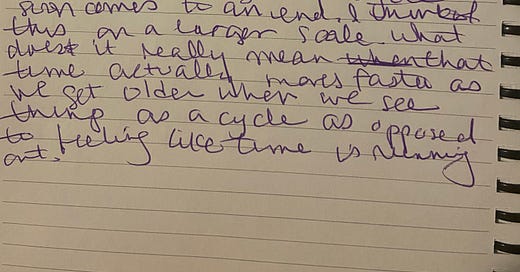 soon comes to an end. I think of
this on a larger scale what
does it really mean when that
time actually moves faster as
we get older when we see
thing as a cycle as opposed
to feeling like time is running
out.